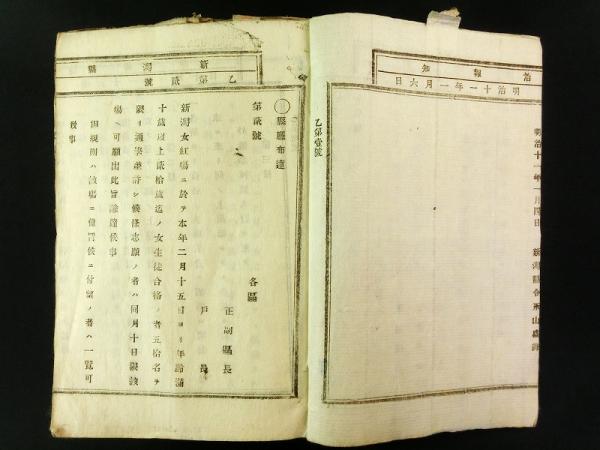 治報知
明治十一年一月六日
明治十一年一月四日
新潟縣令永山盛輝
乙第壹號
新潟縣
乙第貳號
〇縣廳布達
第貳號
各區
正副區長
戸長
新潟女紅場ニ於テ本年二月十五日ヨリ年齡滿
十歳以上貳拾歳迄ノ女生徒合格ノ者五拾名ヲ
限リ通學差許シ候條志願ノ者ハ同月十日限該
場ヘ可願出此旨諭達候事
但規則ハ該場ニ備置候ニ付望ノ者ハ一覽可
致事